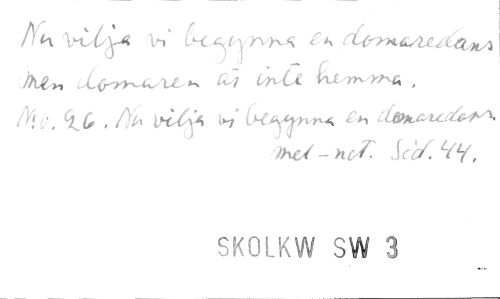 Nu vilja vi begynna en domaredans
men domaren är inte hemma.
N:o. 26. Nu vilja vi begynna en domaredans.
mel-not. Sid. 44.
SKOLKW SW 3